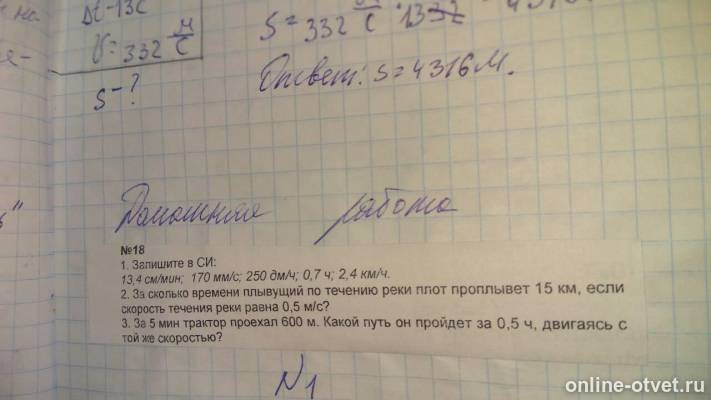 Δt-13с
V=332 м/с
S-?
S=332 м/с · 13
Ответ: S=4316м.
Домашняя работа
№18
1. Запишите в СИ:
13,4 см/мин; 170 мм/с; 250 дм/ч; 0,7 ч; 2,4 км/ч.
2. За сколько времени плывущий по течению реки плот проплывет 15 км, если
скорость течения реки равна 0,5 м/с?
3. За 5 мин трактор проехал 600 м. Какой путь он пройдет за 0,5 ч, двигаясь с
той же скоростью?
N1
online-otvet.ru